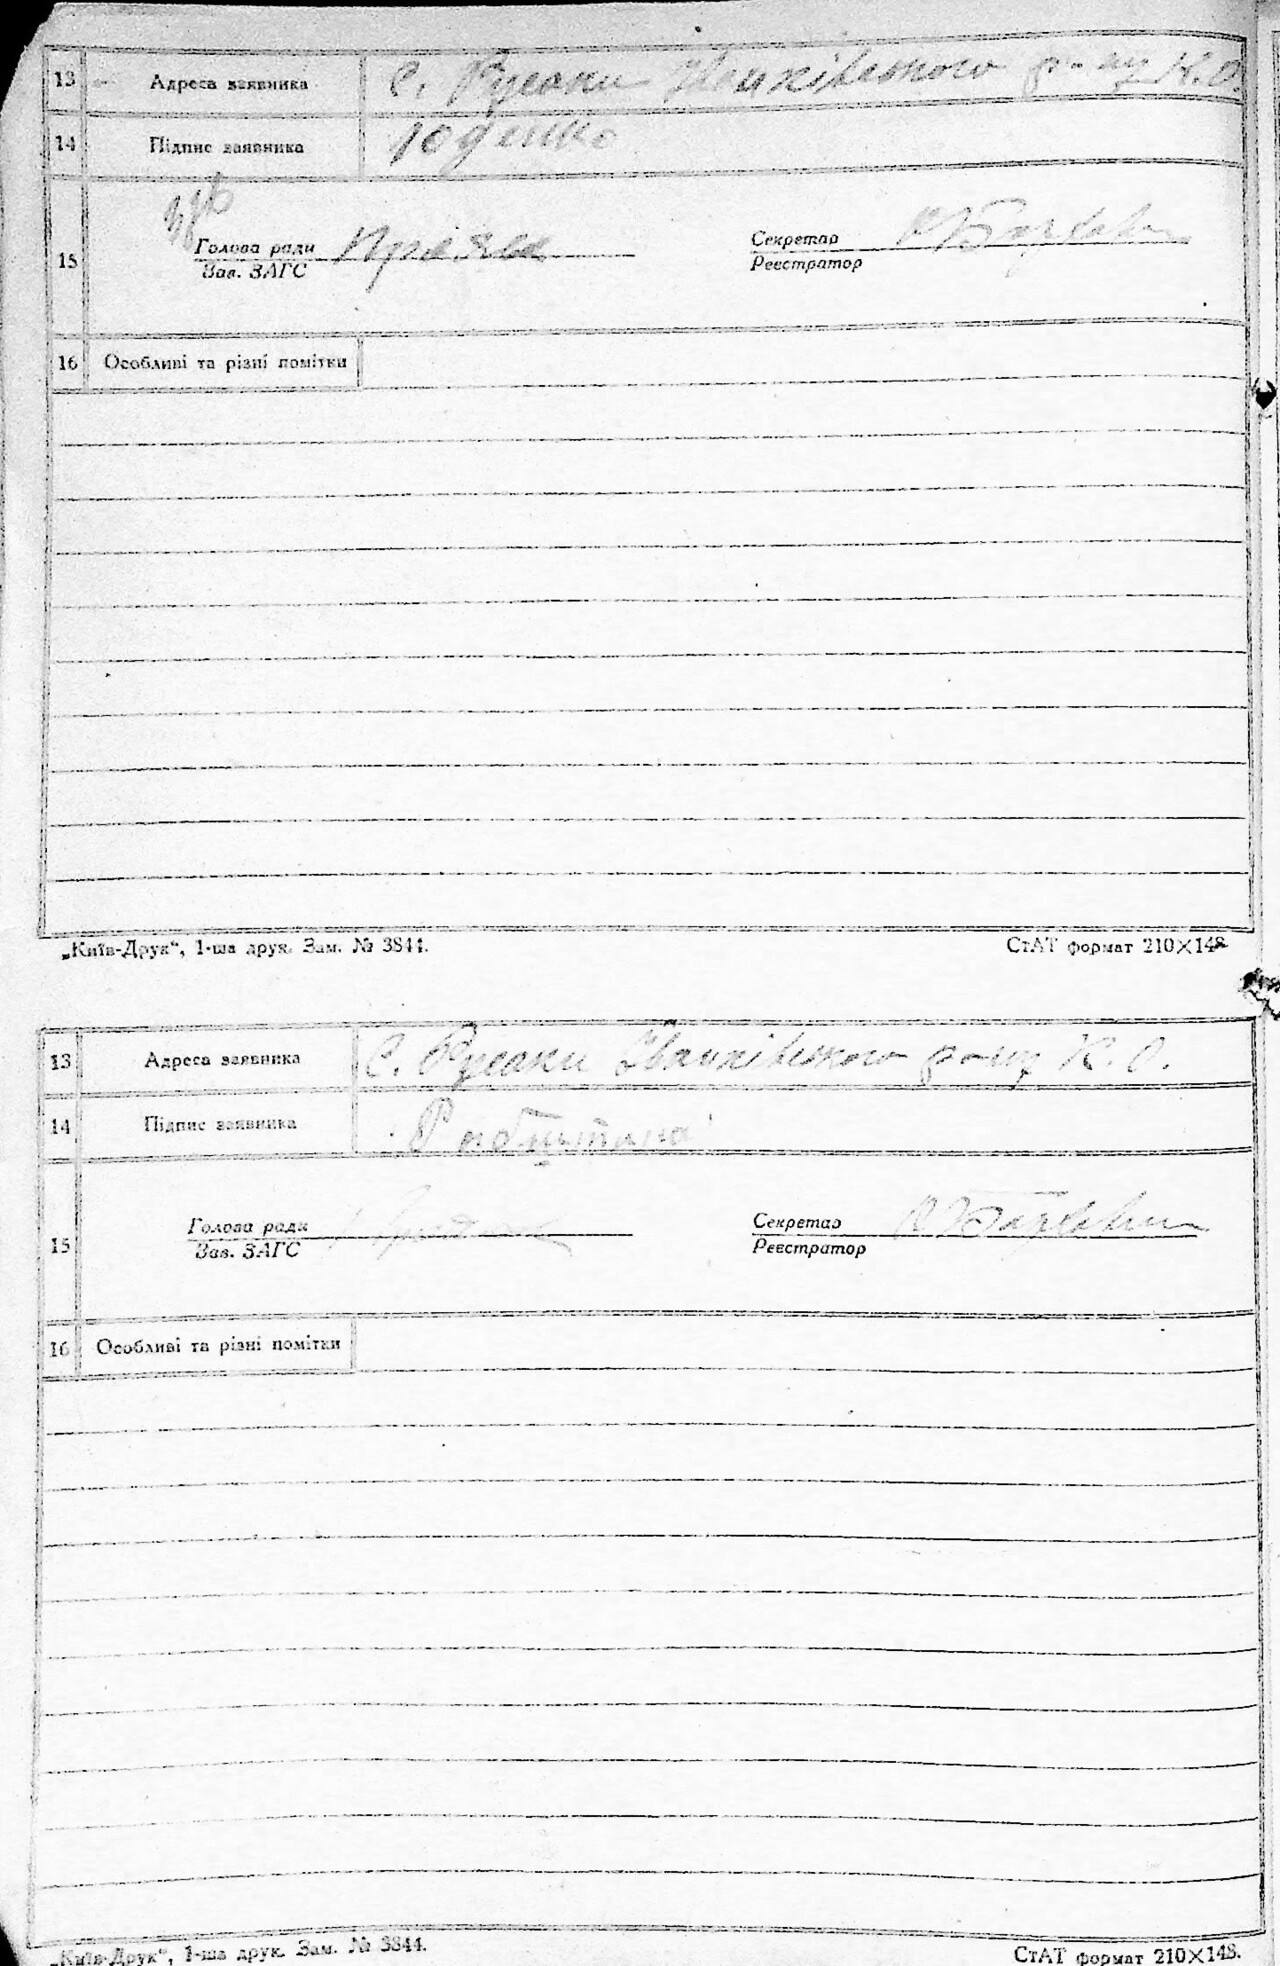 13 Адреса заявника С. Русаки Іванківського р-ну К.О.
14 Підпис заявника Юденко
15 Голова ради Секретар
Зав. ЗАГС Реєстратор
16 Особливі та різні помітки
„Київ-Друк“, 1-ша друк. Зам. № 3844. СтАТ формат 210×148
13 Адреса заявника С. Русаки Іванківського р-ну К.О.
14 Підпис заявника
15 Голова ради Секретар
Зав. ЗАГС Реєстратор
16 Особливі та різні помітки
„Київ-Друк“, 1-ша друк. Зам. № 3844. СтАТ формат 210×148.